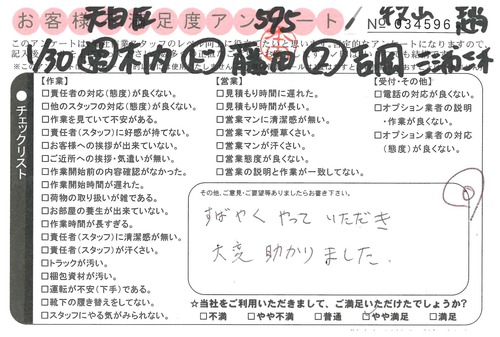 お客様満足度アンケート
天白区
595
No 034596
このアンケートは
1/30
木内
藤田
吉岡
チェックリスト
【作業】
□責任者の対応(態度)が良くない。
□他のスタッフの対応(態度)が良くない。
□作業を見ていて不安がある。
□責任者(スタッフ)に好感が持てない。
□お客様への挨拶が出来ていない。
□ご近所への挨拶・気遣いが無い。
□作業開始前の内容確認がなかった。
□作業開始時間が遅れた。
□荷物の取り扱いが雑である。
□お部屋の養生が出来ていない。
□作業時間が長すぎる。
□責任者(スタッフ)に清潔感が無い。
□責任者(スタッフ)が汗くさい。
□トラックが汚い。
□梱包資材が汚い。
□運転が不安(下手)である。
□靴下の履き替えをしてない。
□スタッフにやる気がみられない。
【営業】
□見積もり時間に遅れた。
□見積もり時間が長い。
□営業マンに清潔感が無い。
□営業マンが煙草くさい。
□営業マンが汗くさい。
□営業態度が良くない。
□営業の説明と作業が一致してない。
【受付・その他】
□電話の対応が良くない。
□オプション業者の説明
・作業が良くない。
□オプション業者の対応
(態度)が良くない。
その他、ご意見・ご要望等ありましたらお書き下さい。
すばやく やって いただき
大変 助かりました.
☆当社をご利用いただきまして、ご満足いただけたでしょうか?
□不満 □やや不満 □普通 □やや満足 □満足